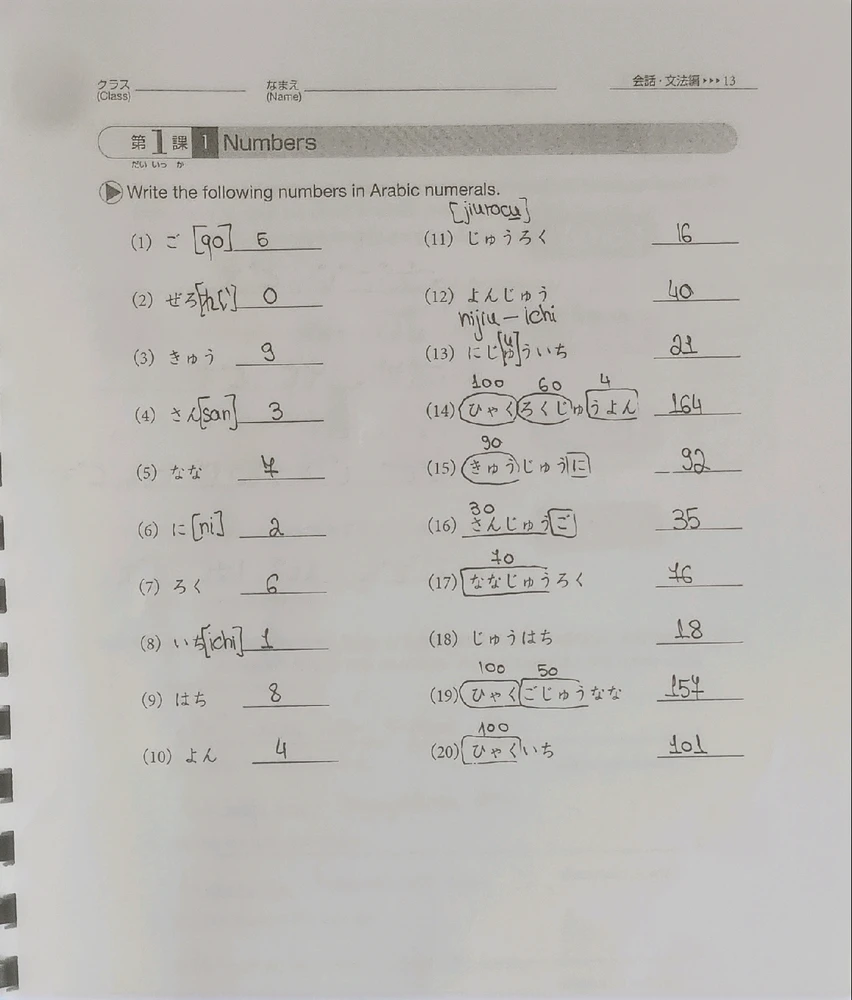 クラス
(Class)
なまえ
(Name)
会話・文法編▸▸▸13
第1課 1 Numbers
だい いっ か
Write the following numbers in Arabic numerals.
(1) ご [go] 5
(2) ぜろ 0
(3) きゅう 9
(4) さん [san] 3
(5) なな 7
(6) に [ni] 2
(7) ろく 6
(8) いち [ichi] 1
(9) はち 8
(10) よん 4
[jiurocu]
(11) じゅうろく 16
(12) よんじゅう 40
nijiu – ichi
(13) にじゅういち 21
100 60 4
(14) ひゃくろくじゅうよん 164
90
(15) きゅうじゅうに 92
30
(16) さんじゅうご 35
70
(17) ななじゅうろく 76
(18) じゅうはち 18
100 50
(19) ひゃくごじゅうなな 157
100
(20) ひゃくいち 101